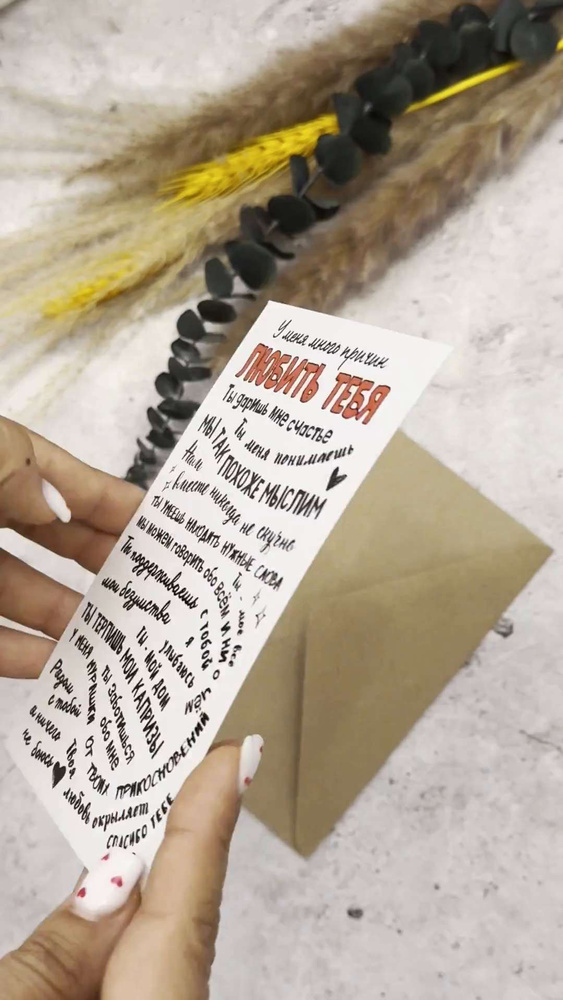 У меня много причин
ЛЮБИТЬ ТЕБЯ
Ты даришь мне счастье
Ты меня понимаешь
МЫ ТАК ПОХОЖЕ МЫСЛИМ
Нам вместе никогда не скучно
ТЫ УМЕЕШЬ НАХОДИТЬ НУЖНЫЕ СЛОВА
МЫ МОЖЕМ ГОВОРИТЬ ОБО ВСЁМ И НИ О ЧЁМ
Ты - моё всё
Ты поддерживаешь мои безумства
я улыбаюсь с тобой
ТЫ - МОЙ ДОМ
ТЫ ТЕРПИШЬ МОИ КАПРИЗЫ
ТЫ ЗАБОТИШЬСЯ ОБО МНЕ
У МЕНЯ МУРАШКИ ОТ ТВОИХ ПРИКОСНОВЕНИЙ
Рядом с тобой я ничего не боюсь
Твоя любовь окрыляет
СПАСИБО ТЕБЕ